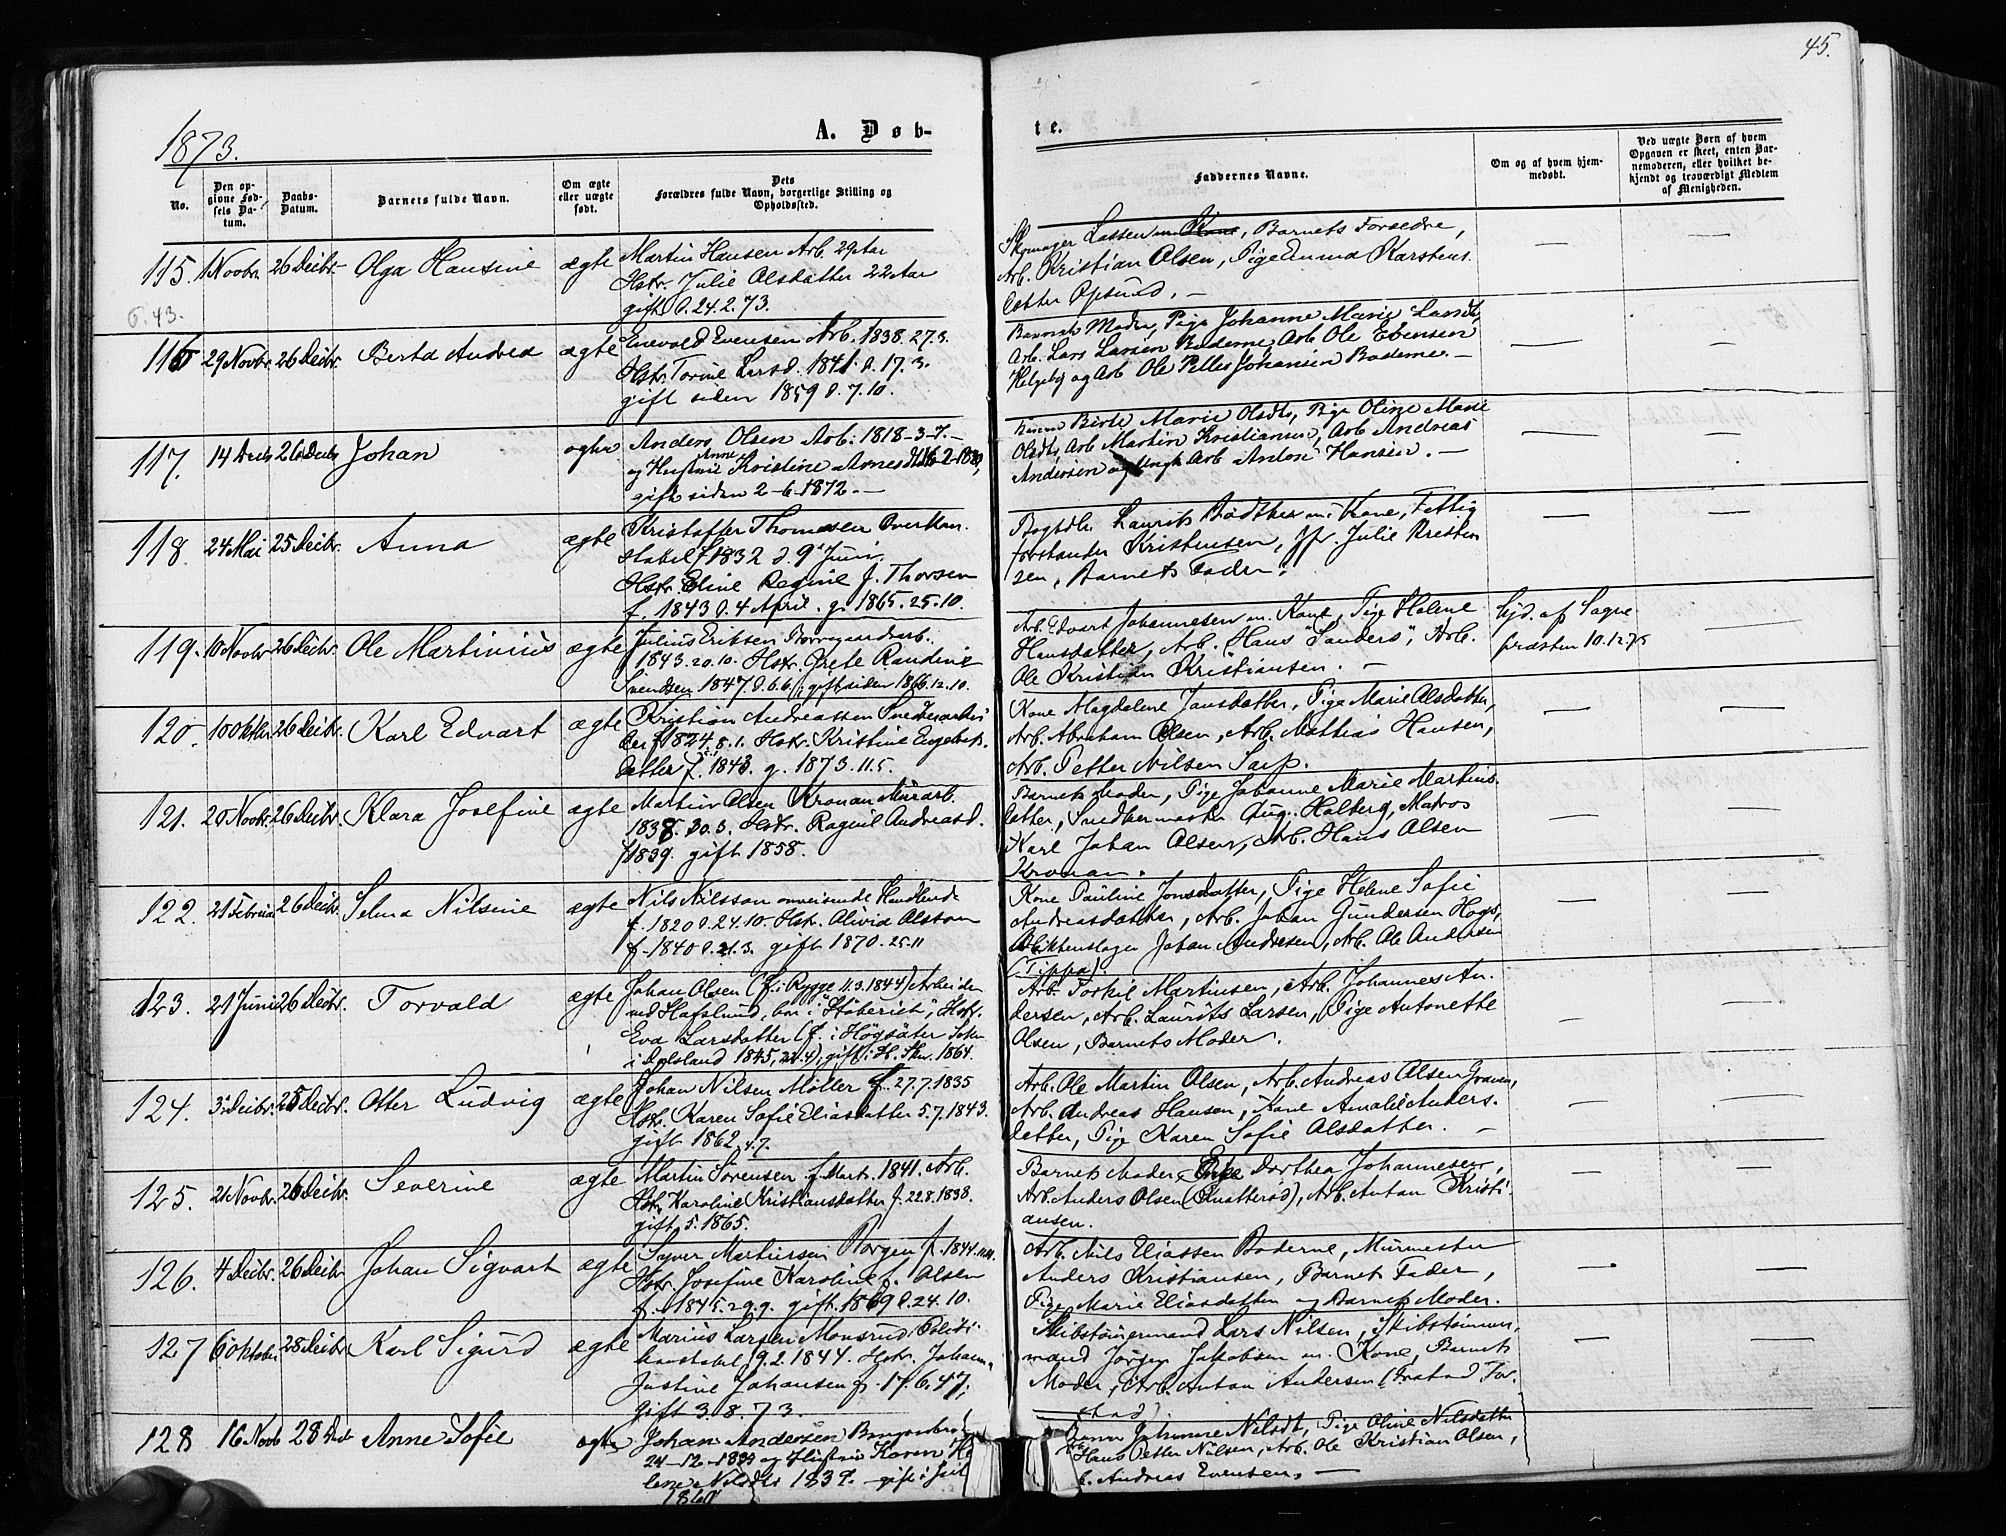 45.
1873.
A. Døb-
te.
No.
Den op-
givne Fød-
sels Da-
tum.
Daabs-
Datum.
Barnets fulde Navn.
Om ægte
eller uægte
født.
Dets
Forældres fulde Navn, borgerlige Stilling og
Opholdssted.
Faddernes Navne.
Om og af hvem hjem-
medøbt.
Ved uægte Børn af hvem
Opgaven er skeet, enten Bar-
nemoderen, eller hvilket be-
kjendt og troværdigt Medlem
af Menigheden.
115. 1 Novbr. 26 Decbr. Olga Hansine ægte Martin Hansen Arb. 29 Aar
Hstr. Julie Olsdatter 22 Aar
gift d. 24.2.73.
Skomager Lassen m. Kone, Barnets Forældre,
Arb. Kristian Olsen, Pige Emma Karstens
datter Opsund. —
116 29 Novbr. 26 Decbr. Berta Andrea ægte Enevold Evensen Arb. 1838. 27.3.
Hstr. Torine Larsd. 1841. d. 17.3.
gift siden 1859 d. 7.10.
Barnets Moder, Pige Johanne Marie Larsdt,
Arb. Lars Larsen Boderne, Arb Ole Ebensen
og Arb Ole Pelles Johansen Boderne. —
117. 14 Decbr 26 Decbr Johan ægte Anders Olsen Arb. 1818-3-7.-
og Hustrue Anne Kristine
gift siden 2-6-1872.—
Birte Marie Olsdt, Pige Oline Marie
Olsdt, Arb Martin Kristiansen, Arb Andreas
Andersen og Ungk Arb Anton Hansen. —
118. 24 Mai 25 Decbr. Anna ægte Kristoffer Thomesen Overkon-
stabel f 1832 d 9 Juni
Hstr. Eline Regine f. Thorsen
f. 1843 d. 4 April. g. 1865. 25.10.
Bogtdlr. Laurits Bødtker m. Kone, Fattig
forstander Kristensen, Jfr. Julie Kresten
sen, Barnets Fader.
119. 10 Novbr 26 Decbr. Ole Martinius ægte Julius Eriksen Borregaardsarb.
1843. 20.10. Hstr. Grete Randine
Svendsen 1847. d. 6.6. gift siden 1866. 12.10.
Arb. Edvart Johannesen m. Kone, Pige Helene
Hansdatter, Arb. Hans "Sanders", Arb.
Ole Kristian Kristiansen. —
hjd. af Sogne
præsten 10.12.73
120. 10 Oktbr 26 Decbr. Karl Edvart ægte Kristian Andreassen Snedkerarbei
der f 1824. 8.1. Hstr. Kristine Engebrets
datter f. 1843. g. 1873. 11.5.
Kone Magdalene Jansdatter, Pige Marie Olsdatter,
Arb. Abraham Olsen, Arb. Mathias Hansen,
Arb. Petter Nilsen Sarp.
121. 20 Novbr. 26 Decbr. Klara Josefine ægte Martin Olsen Kronan Murarb.
1838. 30.3. Hstr. Ragnil Andreasd.
f 1839. gift 1858.
Barnets Moder, Pige Johanne Marie Martins
datter, Snedkermester Aug. Halberg, Matros
Karl Johan Olsen, Arb. Hans Olsen
Kronan.
122. 21 Februar 26 Decbr. Selma Nilsine ægte Nils Nilsson omreisende Handlende
f. 1820 d. 24.10. Hstr. Olivia Olsson
f. 1840 d. 21.3. gift 1870. 25.11
Kone Pauline Jonsdatter, Pige Helene Sofie
Andreasdatter, Arb. Johan Gundersen Hogs,
Blikkenslager Johan Andresen, Arb. Ole Andersen
(Tippa).
123. 21 Juni 26 Decbr. Torvald ægte Johan Olsen (f. i Rygge 11.3.1844) Arbeider
ved Hafslund, boi "Støberiet", Hstr.
Eva Larsdatter (f. i Högsäter Sokn
i Dalsland 1845, 21.4), gift i 1864.
Arb. Torkil Martinsen, Arb. Johannes An-
dersen, Arb. Laurits Larsen, Pige Antonette
Olsen, Barnets Moder.
124. 3 Decbr. 25 Decbr. Otter Ludvig ægte Johan Nilsen Møller f. 27.7.1835
Hstr. Karen Sofie Eliasdatter 5.7.1843.
gift 1862. 4.7.
Arb. Ole Martin Olsen, Arb. Andreas Olsen Graven,
Arb. Andreas Hansen, Kone Amalie Anders-
datter, Pige Karen Sofie Olsdatter. —
125. 21 Novbr. 26 Decbr. Severine ægte Martin Sørensen f. Marts 1841. Arb.
Hstr. Karoline Kristiansdatter f. 22.8.1838.
gift 5. 1865.
Barnets Moder, Enke Dorthea Johannesen,
Arb. Anders Olsen (Knatterød), Arb. Anton Kristi-
ansen.
126. 4 Decbr. 26 Decbr Johan Sigvart ægte Syver Martinsen Borgen f. 1844
Hstr. Josefine Karoline f. Olsen
f. 1845. 29.9. gift 1869 d. 24.10.
Arb. Nils Eliassen Boderne, Murmester
Anders Kristiansen, Barnets Fader,
Pige Marie Eliasdatter og Barnets Moder.
127 6 Oktober 28 Decbr Karl Sigurd ægte Marius Larsen Monsrud, Politi-
konstabel 19.2.1844. Hstr. Johanne
Justine Johansen f. 17.6.47,
gift 3.8.73.
Skibstømermand Lars Nilsen, Skibstømmer-
mand Jørgen Jakobsen m. Kone, Barnets
Moder, Arb. Anton Andersen
128 16 Novb 28 Decb Anne Sofie ægte Johan Andersen
24-12-1839 og Hustrue Karen He
lene Nilsdtr 1837. — gift i Juli
1860
Johanne Nilsdt, Pige Oline Nilsdatter
Hans Petter Nilsen, Arb. Ole Kristian Olsen,
Andreas Evensen. —